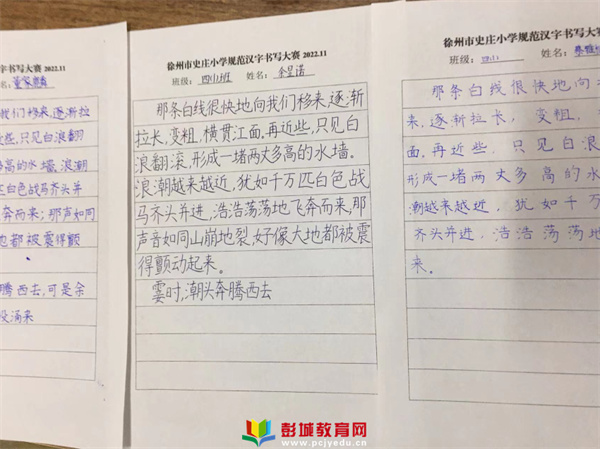 字书写大赛 2022.11
我们移来,逐渐拉
些,只见白浪翻
高的水墙。浪潮
白色战马齐头并
奔而来;那声如同
地都被震得颤
腾西去,可是余
没涌来
徐州市史庄小学规范汉字书写大赛 2022.11
班级: 四(1)班 姓名: 余呈诺
那条白线很快地向我们移来,逐渐
拉长,变粗,横贯江面,再近些,只见白
浪翻滚,形成一堵两丈多高的水墙。
浪潮越来越近,犹如千万匹白色战
马齐头并进,浩浩荡荡地飞奔而来,那
声音如同山崩地裂,好像大地都被震
得颤动起来。
霎时,潮头奔腾西去
徐州市史庄小学规范汉字书写大
班级: 姓名:
那条白线很快地向
来,逐渐拉长,变粗,
面,再近些,只见白浪
形成一堵两丈多高的水
潮越来越近,犹如千万
齐头并进,浩浩荡荡地
来。
彭城教育网
www.pcjyedu.cn